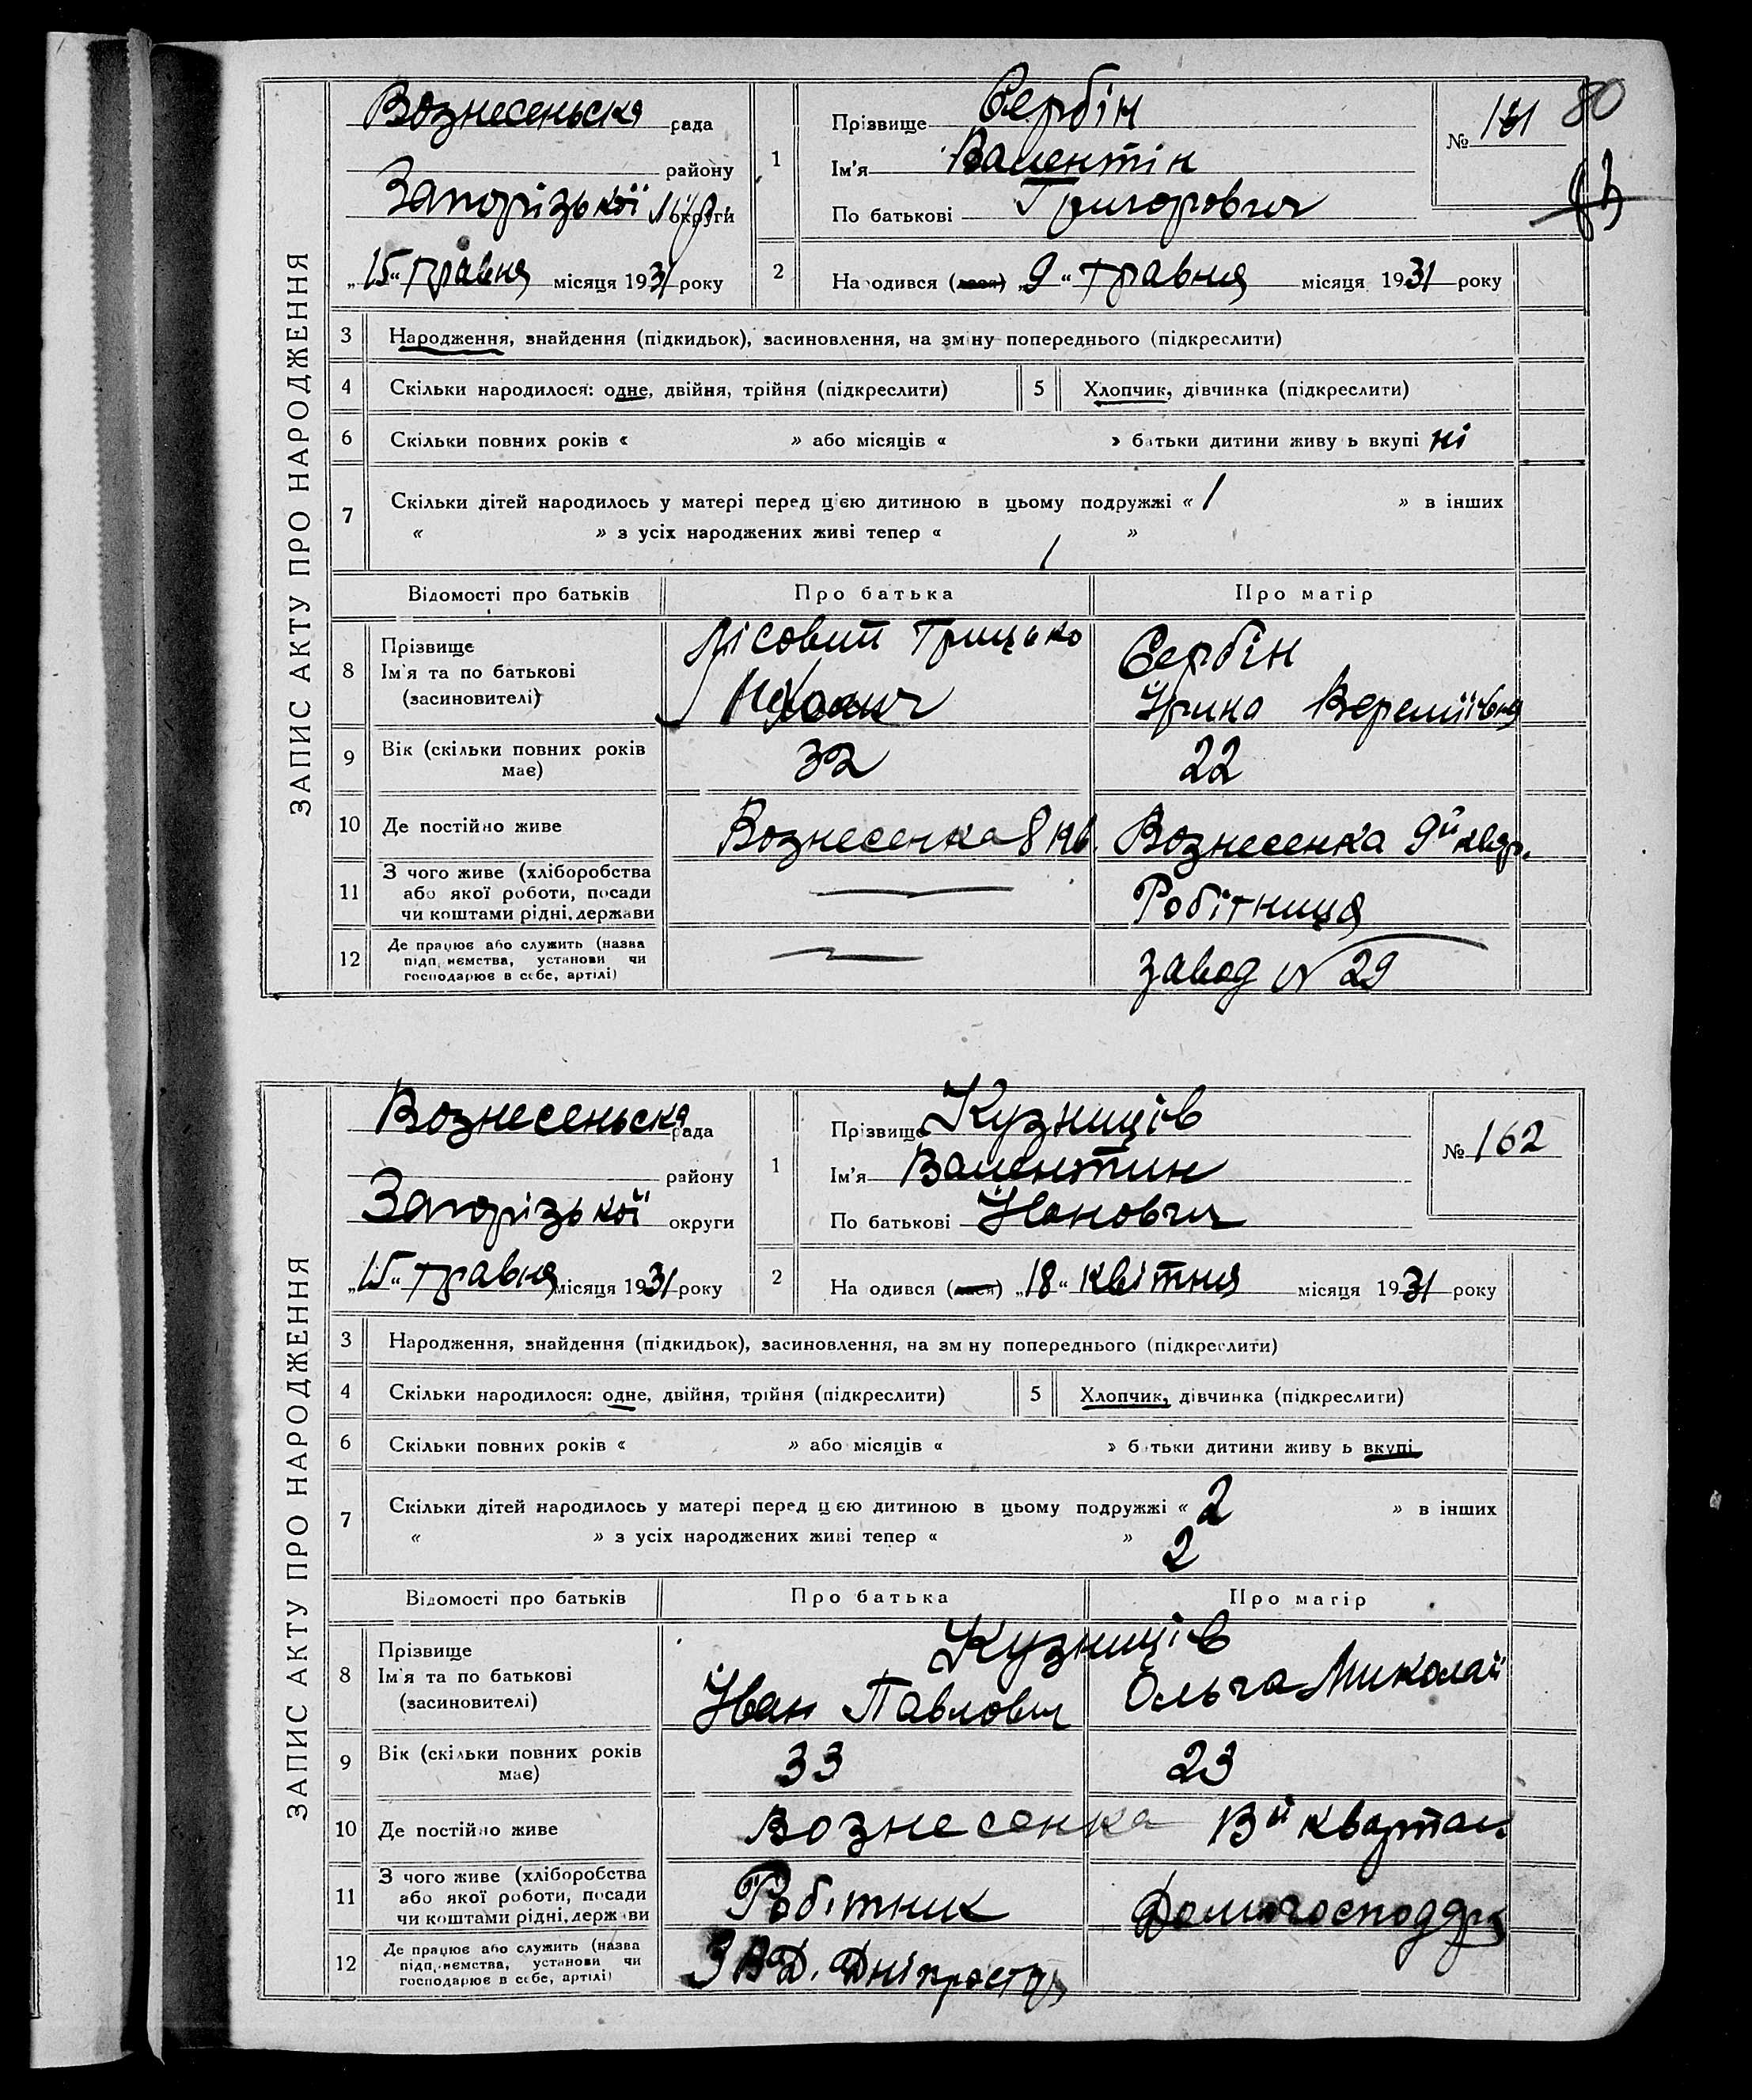 80
ЗАПИС АКТУ ПРО НАРОДЖЕННЯ
Вознесеньска рада
району
Запорізької округи
„15" травня місяця 1931 року
1 Прізвище Сербін
Ім'я Валентін
По батькові Григорович
№ 161
2 Народився (лася) „9" травня місяця 1931 року
3 Народження, знайдення (підкидьок), засиновлення, на зміну попереднього (підкреслити)
4 Скільки народилося: одне, двійня, трійня (підкреслити) 5 Хлопчик, дівчинка (підкреслити)
6 Скільки повних років « » або місяців « » батьки дитини живуть вкупі ні
7 Скільки дітей народилось у матері перед цією дитиною в цьому подружжі « 1 » в інших
« » з усіх народжених живі тепер « »
1
Відомості про батьків Про батька Про матір
8 Прізвище
Ім'я та по батькові
(засновителі)
Лісовий Грицько
Сербін
Ірина Веремїївна
9 Вік (скільки повних років має) 32 22
10 Де постійно живе Вознесенка 8 кв. Вознесенка 9й квар.
11 З чого живе (хліборобства
або якої роботи, посади
чи коштами рідні, держави
Робітниця
12 Де працює або служить (назва
підприємства, установи чи
господарює в себе, артілі)
завод № 29
ЗАПИС АКТУ ПРО НАРОДЖЕННЯ
Вознесеньска рада
району
Запорізької округи
„15" травня місяця 1931 року
1 Прізвище Кузниців
Ім'я Валентин
По батькові Іванович
№ 162
2 Народився (лася) „18" квітня місяця 1931 року
3 Народження, знайдення (підкидьок), засиновлення, на зміну попереднього (підкреслити)
4 Скільки народилося: одне, двійня, трійня (підкреслити) 5 Хлопчик, дівчинка (підкреслити)
6 Скільки повних років « » або місяців « » батьки дитини живуть вкупі
7 Скільки дітей народилось у матері перед цією дитиною в цьому подружжі « 2 » в інших
« » з усіх народжених живі тепер « » 2
Відомості про батьків Про батька Про матір
8 Прізвище
Ім'я та по батькові
(засиновителі)
Кузниців
Іван Павлович Ольга Миколаї
9 Вік (скільки повних років має) 33 23
10 Де постійно живе Вознесенка 13й квартал
11 З чого живе (хліборобства
або якої роботи, посади
чи коштами рідні, держави
Робітник Домогосподар
12 Де працює або служить (назва
підприємства, установи чи
господарює в себе, артілі)
Дніпростр